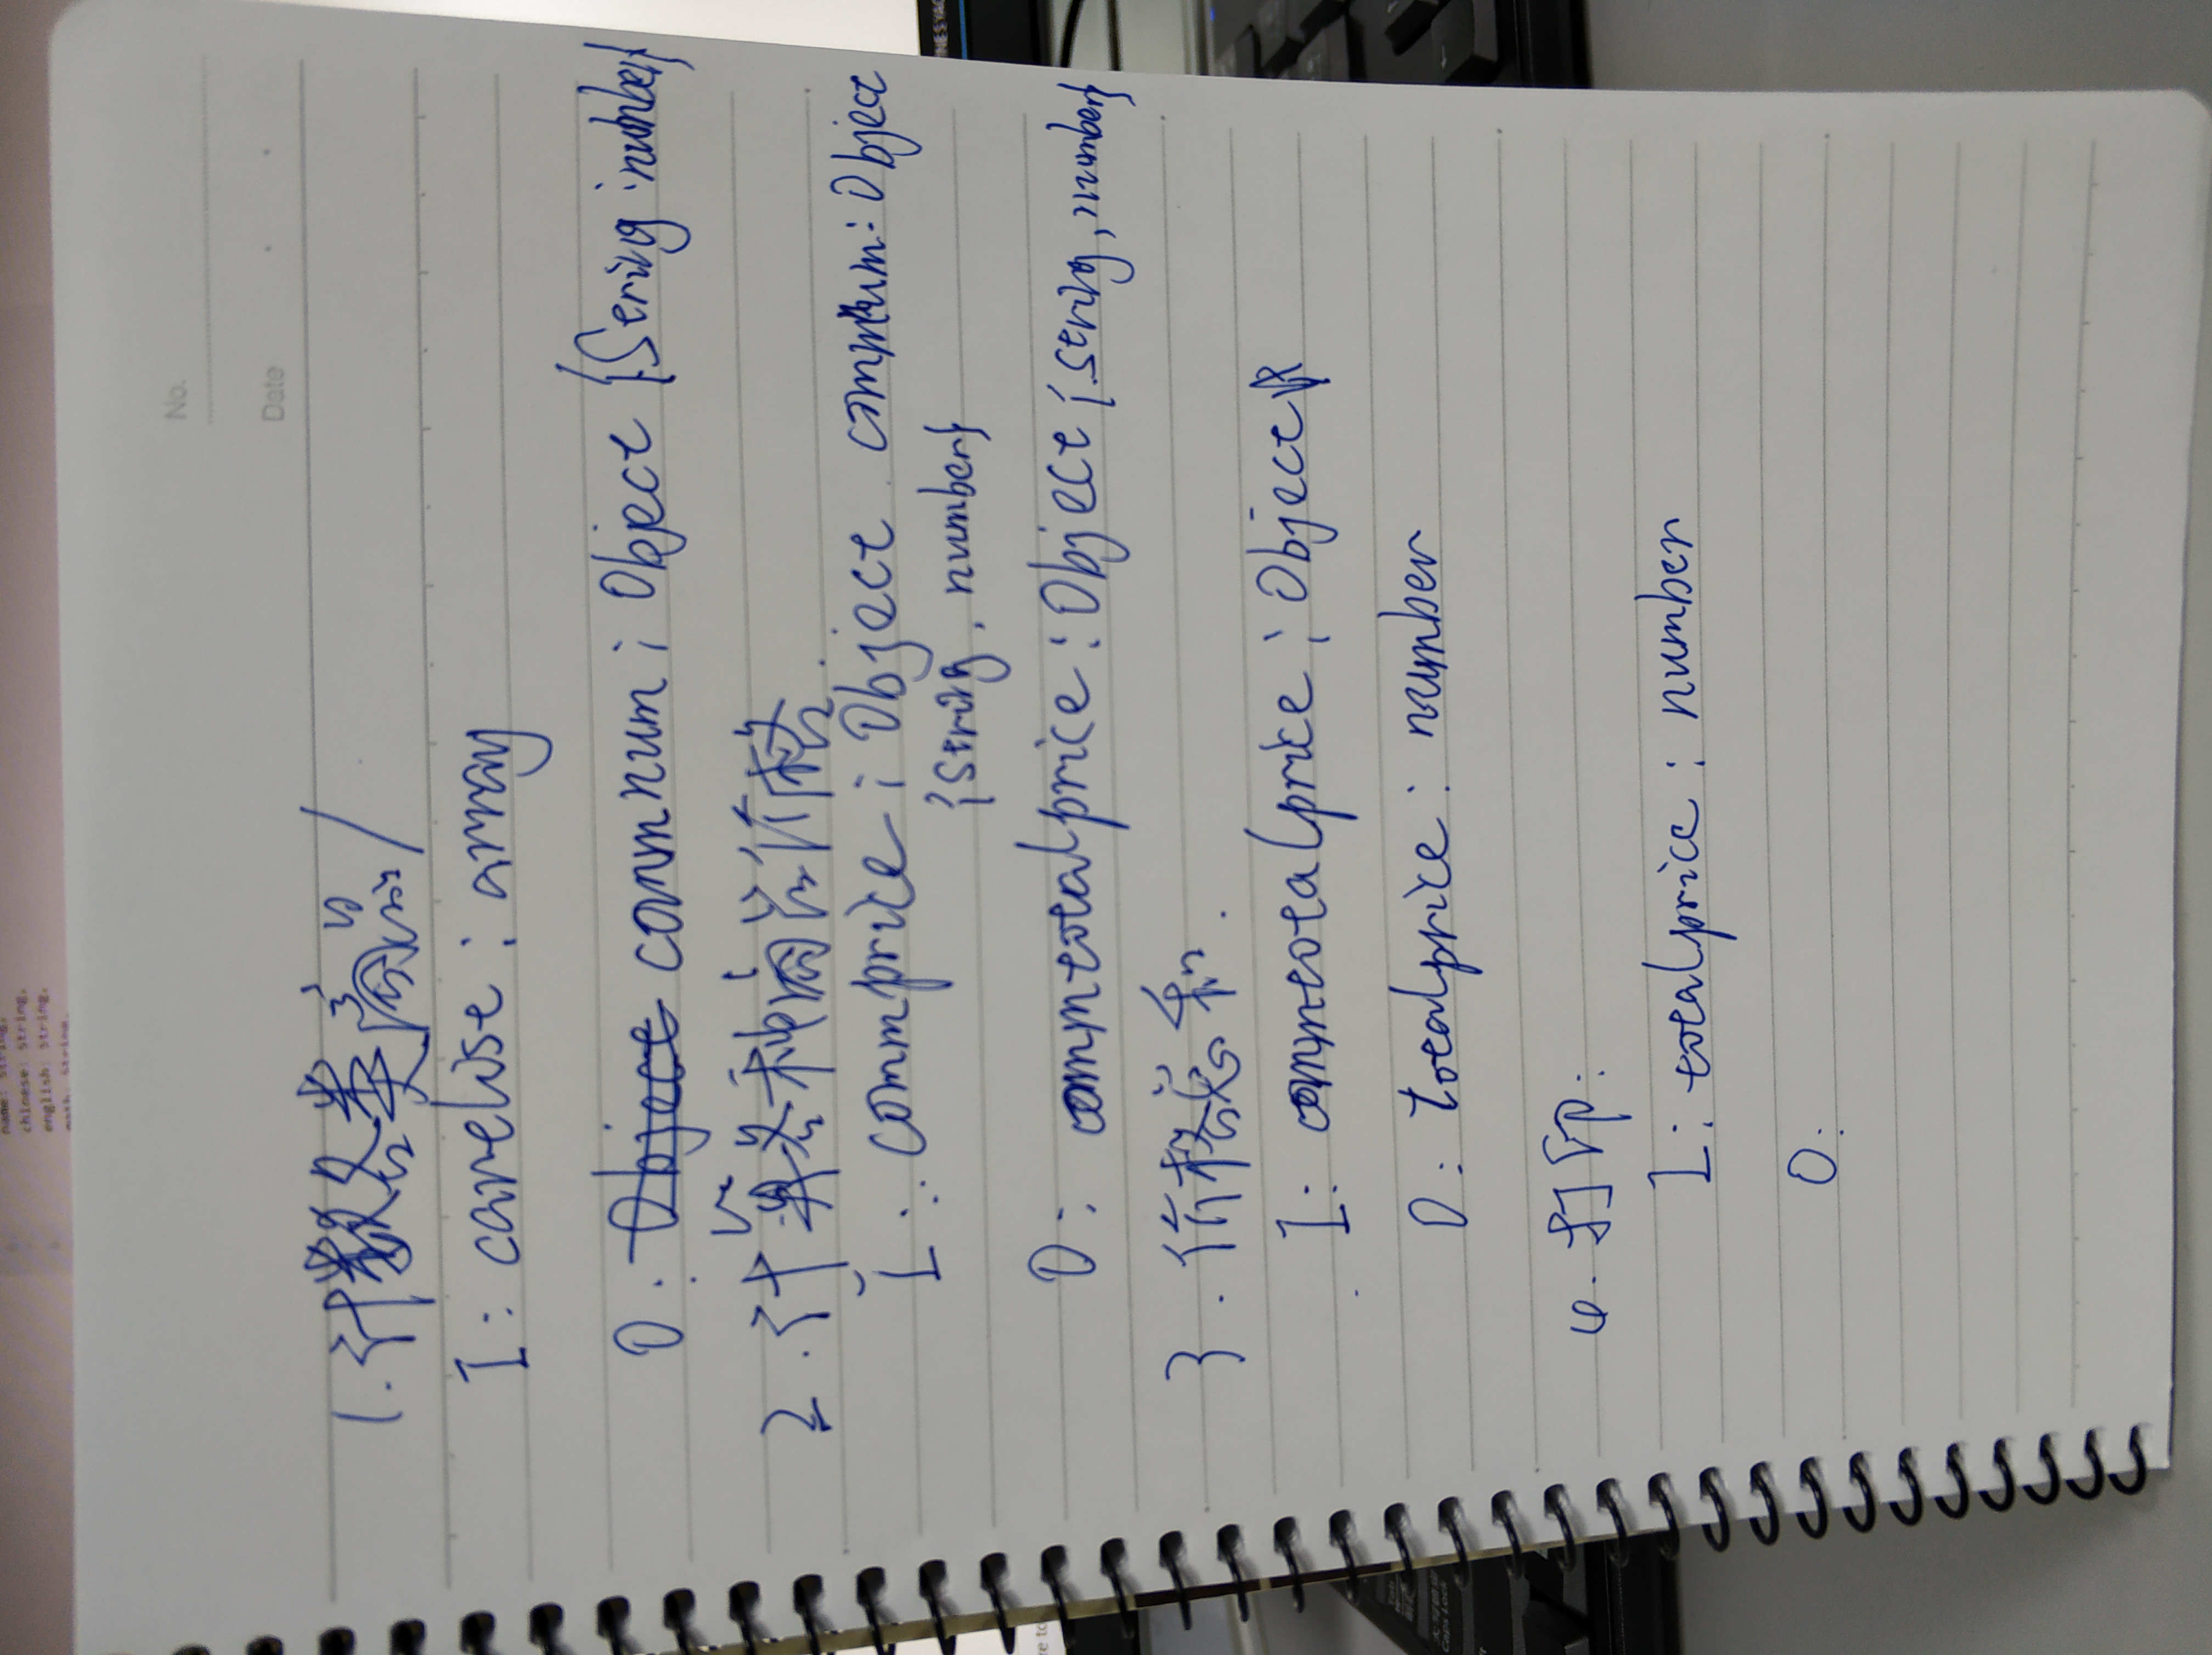 name: string,
chinese: string,
english: string,
math: string,
No.
Date
1.计数各类商品/
I: cartlist: array
O: Object commnum: Object {String:number}
2.计算各种商品价格.
I: commprice: Object commnum: Object
{string, number}
O: commtotalprice: Object {string, number}
3.价格总和.
I: commtotalprice: Object
O: totalprice: number
4.打印:
I: totalprice: number
O:
Caps Lock
Tab